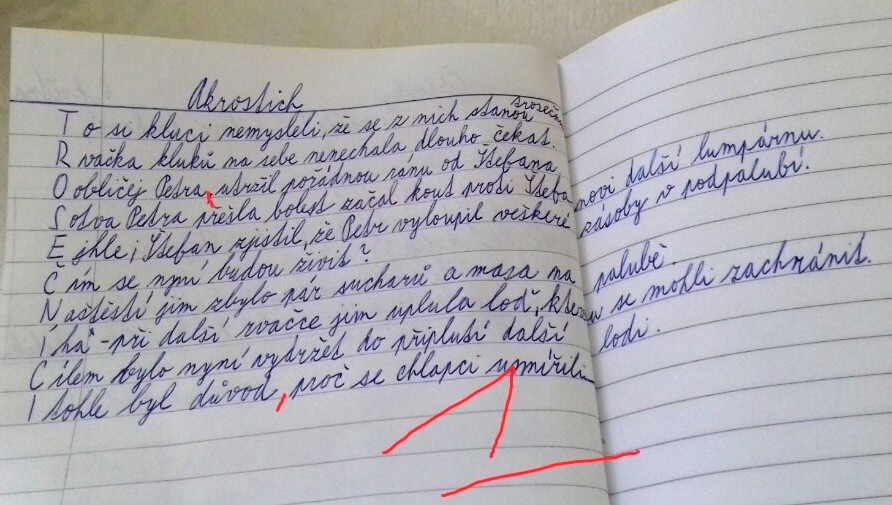 Akrostich
To si kluci nemysleli, že se z nich stanou trosečníci.
Rvačka kluků na sebe nenechala dlouho čekat.
Oobličej Petra, utržil pořádnou ránu od Štefana
Sotva Petra přešla bolest začal kout proti Štefanovi další lumpárnu.
Ejhle, Štefan zjistil, že Petr vyloupil veškeré zásoby v podpalubí.
Čím se nyní budou živit?
Naštěstí jim zbylo pár sucharů a masa na palubě.
Íha - při další rvačce jim uplula loď, kterou se mohli zachránit.
Cílem bylo nyní vydržet do připlutí další lodi.
I tohle byl důvod, proč se chlapci usmířili.